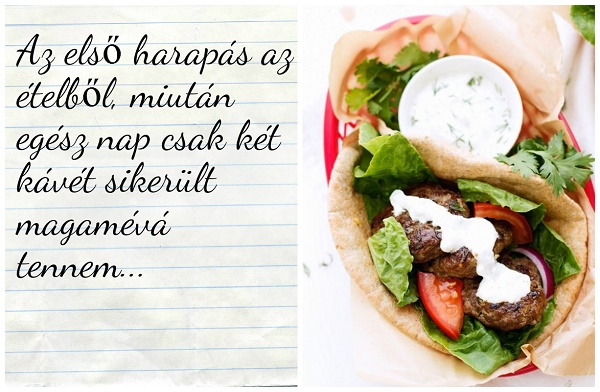 Az első harapás az
ételből, miután
egész nap csak két
kávét sikerült
magamévá
tennem...